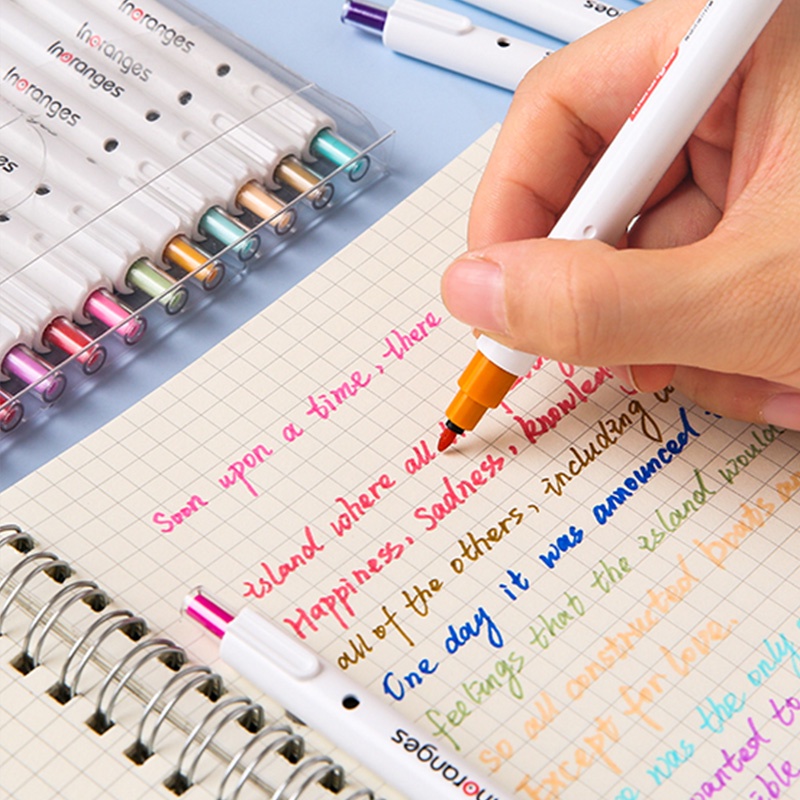 Inoranges
Inoranges
Inoranges
Inoranges
Soon upon a time, there
island where all
Happiness, Sadness, knowled
all of the others, including
One day it was announced
feelings that the island would
so all constructed boats an
Except for love.
was the only
wanted to
Inoranges